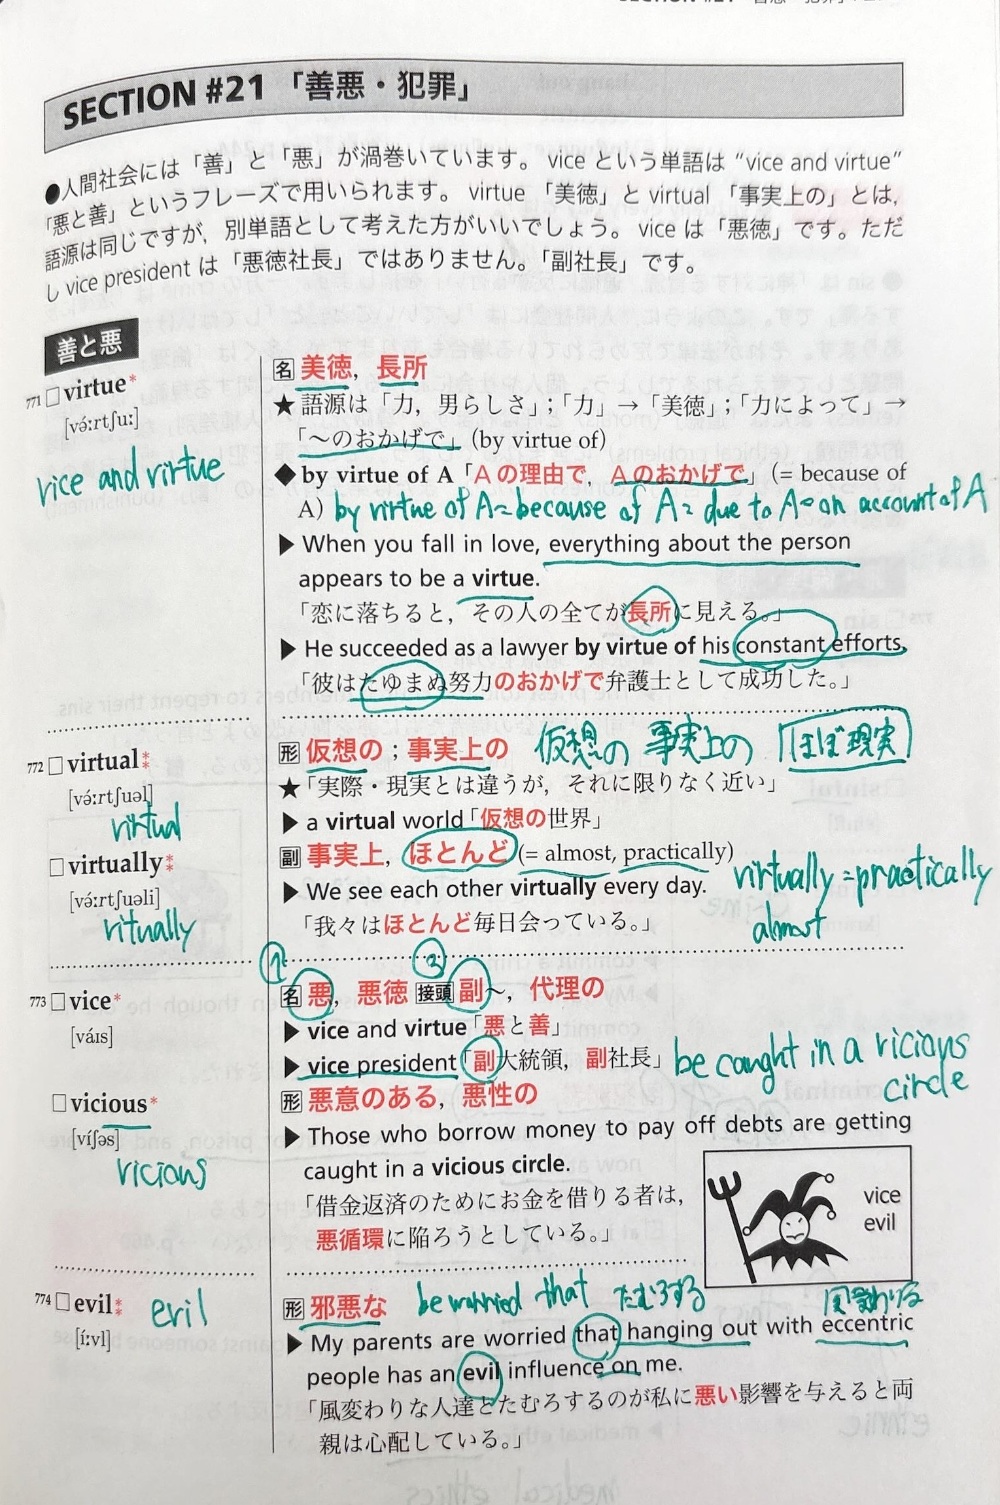 SECTION #21 「善悪・犯罪」
●人間社会には「善」と「悪」が渦巻いています。 vice という単語は “vice and virtue”
「悪と善」というフレーズで用いられます。 virtue 「美徳」と virtual 「事実上の」とは,
語源は同じですが, 別単語として考えた方がいいでしょう。 vice は「悪徳」です。ただ
し vice president は「悪徳社長」ではありません。「副社長」です。
善と悪
771 □ virtue*
[vɚ́ːrtʃuː]
vice and virtue
名 美徳, 長所
★ 語源は「力, 男らしさ」;「力」→「美徳」;「力によって」→
「〜のおかげで」(by virtue of)
◆ by virtue of A「Aの理由で, Aのおかげで」(= because of
A) by virtue of A = because of A = due to A = on account of A
▶ When you fall in love, everything about the person
appears to be a virtue.
「恋に落ちると, その人の全てが長所に見える。」
▶ He succeeded as a lawyer by virtue of his constant efforts.
「彼はたゆまぬ努力のおかげで弁護士として成功した。」
772 □ virtual⁑
[vɚ́ːrtʃuəl]
virtual
形 仮想の ; 事実上の 仮想の 事実上の ほぼ現実
★「実際・現実とは違うが, それに限りなく近い」
▶ a virtual world「仮想の世界」
□ virtually⁑
[vɚ́ːrtʃuəli]
副 事実上, ほとんど (= almost, practically)
▶ We see each other virtually every day. virtually = practically
「我々はほとんど毎日会っている。」 almost
773 □ vice*
[váɪs]
① ②
名 悪, 悪徳 接頭 副〜, 代理の
▶ vice and virtue「悪と善」
▶ vice president「副大統領, 副社長」 be caught in a vicious
circle
□ vicious*
[víʃəs]
vicious
形 悪意のある, 悪性の
▶ Those who borrow money to pay off debts are getting
caught in a vicious circle.
「借金返済のためにお金を借りる者は,
悪循環に陥ろうとしている。」
vice
evil
774 □ evil⁑ evil
[íːvl]
形 邪悪な be worried that たむろする 風変わりな
▶ My parents are worried that hanging out with eccentric
people has an evil influence on me.
「風変わりな人達とたむろするのが私に悪い影響を与えると両
親は心配している。」